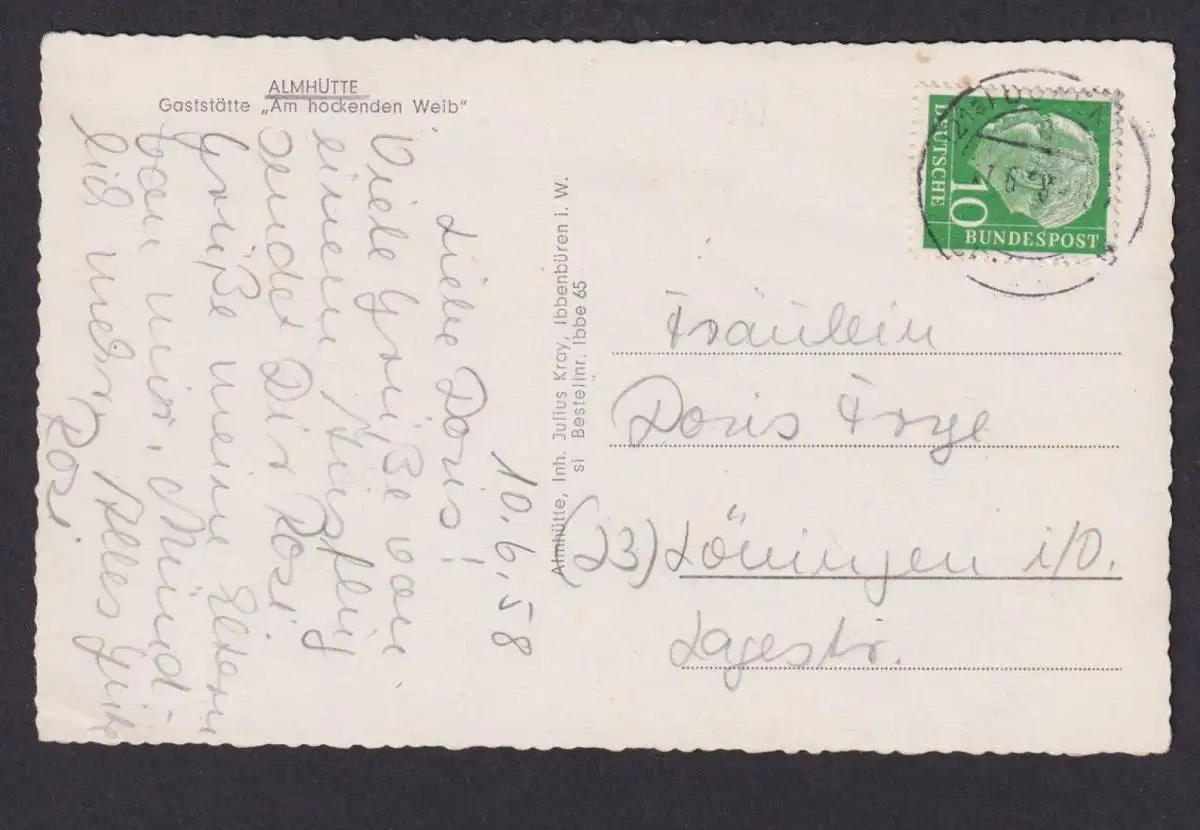 ALMHÜTTE
Gaststätte „Am hockenden Weib"
10.6.58
Liebe Doris!
Viele Grüße von
einem Ausflug
sendet Dir Rosi
Grüße meine Eltern
von mir. Münd-
lich mehr. Alles Gute
Rosi
Almhütte, Inh. Julius Kray, Ibbenbüren i. W.
si Bestellnr. Ibbe 65
DEUTSCHE
10
BUNDESPOST
Fräulein
Doris
(23) Löningen i/O.
Lagestr.